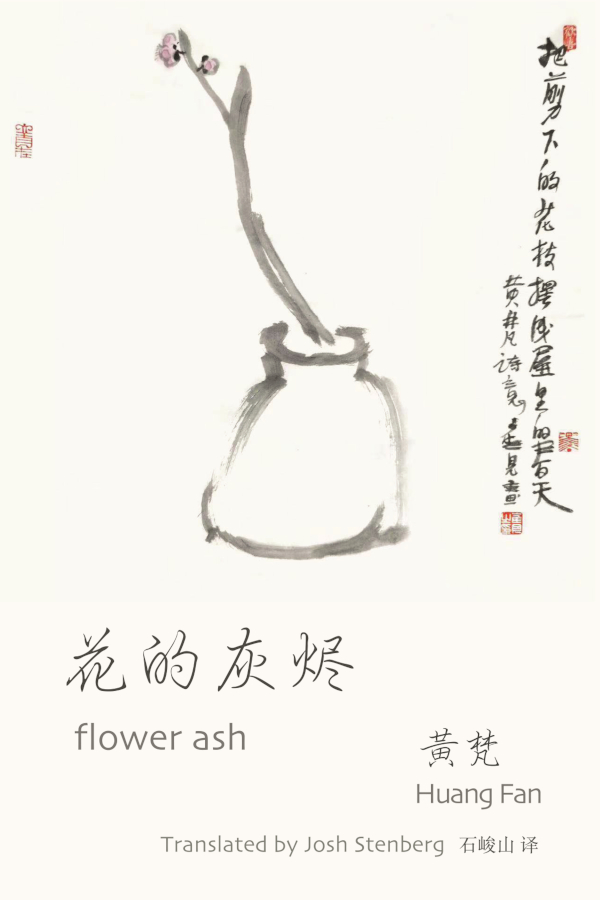 把剪下的花枝摆成屋里的春天
黄梵诗意
花的灰烬
flower ash
黃梵
Huang Fan
Translated by Josh Stenberg 石峻山 译